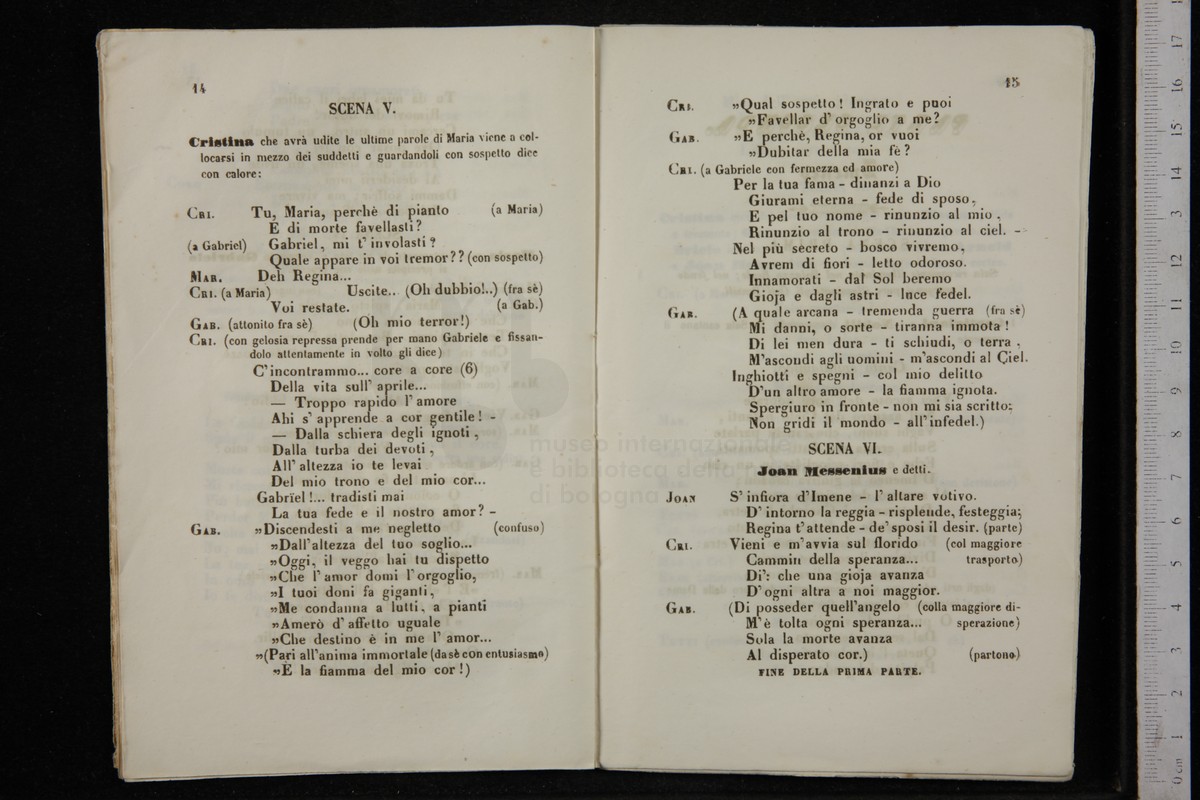 14
SCENA V.
Cristina che avrà udite le ultime parole di Maria viene a col-
locarsi in mezzo dei suddetti e guardandoli con sospetto dice
con calore:
CRI. Tu, Maria, perchè di pianto (a Maria)
E di morte favellasti?
(a Gabriel) Gabriel, mi t' involasti?
Quale appare in voi tremor?? (con sospetto)
MAR. Deh Regina...
CRI. (a Maria) Uscite... (Oh dubbio!..) (fra sè)
Voi restate. (a Gab.)
GAB. (attonito fra sè) (Oh mio terror!)
CRI. (con gelosia repressa prende per mano Gabriele e fissan-
dolo attentamente in volto gli dice)
C'incontrammo... core a core (6)
Della vita sull' aprile...
— Troppo rapido l' amore
Ahi s' apprende a cor gentile! -
— Dalla schiera degli ignoti,
Dalla turba dei devoti,
All' altezza io te levai
Del mio trono e del mio cor...
Gabrïel!... tradisti mai
La tua fede e il nostro amor? -
GAB. »Discendesti a me negletto (confuso)
»Dall'altezza del tuo soglio...
»Oggi, il veggo hai tu dispetto
»Che l' amor domi l' orgoglio,
»I tuoi doni fa giganti,
»Me condanna a lutti, a pianti
»Amerò d' affetto uguale
»Che destino è in me l' amor...
»(Pari all'anima immortale (da sè con entusiasmo)
»È la fiamma del mio cor!)
15
CRI. »Qual sospetto! Ingrato e puoi
»Favellar d' orgoglio a me?
GAB. »E perchè, Regina, or vuoi
»Dubitar della mia fè?
CRI. (a Gabriele con fermezza ed amore)
Per la tua fama - dinanzi a Dio
Giurami eterna - fede di sposo,
E pel tuo nome - rinunzio al mio,
Rinunzio al trono - rinunzio al ciel. -
Nel più secreto - bosco vivremo,
Avrem di fiori - letto odoroso.
Innamorati - dal Sol beremo
Gioja e dagli astri - luce fedel.
GAB. (A quale arcana - tremenda guerra (fra sè)
Mi danni, o sorte - tiranna immota!
Di lei men dura - ti schiudi, o terra,
M'ascondi agli uomini - m'ascondi al Ciel.
Inghiotti e spegni - col mio delitto
D'un altro amore - la fiamma ignota.
Spergiuro in fronte - non mi sia scritto;
Non gridi il mondo - all'infedel.)
SCENA VI.
Joan Messenius e detti.
JOAN S' infiora d'Imene - l' altare votivo.
D' intorno la reggia - risplende, festeggia;
Regina t'attende - de' sposi il desir. (parte)
CRI. Vieni e m'avvia sul florido (col maggiore
Cammin della speranza... trasporto)
Di': che una gioja avanza
D' ogni altra a noi maggior.
GAB. (Di posseder quell'angelo (colla maggiore di-
M'è tolta ogni speranza... sperazione)
Sola la morte avanza
Al disperato cor.) (partono)
FINE DELLA PRIMA PARTE.
museo internazionale
e biblioteca della
di bologna
0 cm 1 2 3 4 5 6 7 8 9 10 11 12 13 14 15 16 17